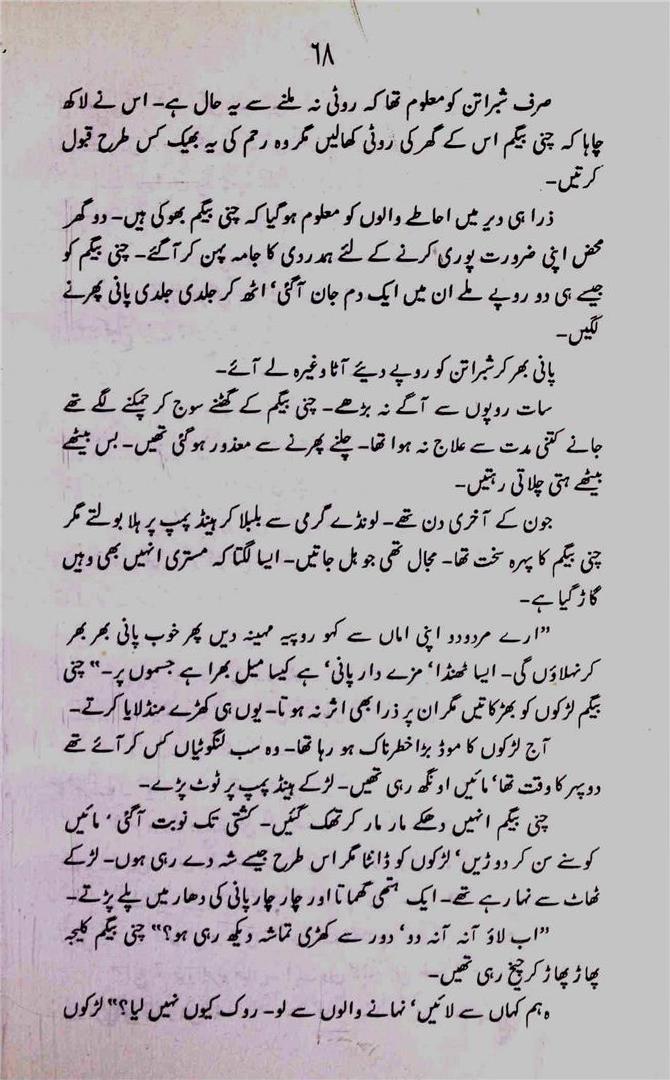 ٦٨
صرف شبراتن کو معلوم تھا کہ روٹی نہ ملنے سے یہ حال ہے۔ اس نے لاکھ
چاہا کہ چنی بیگم اس کے گھر کی روٹی کھالیں مگر وہ رحم کی یہ بھیک کس طرح قبول
کرتیں۔
ذرا ہی دیر میں احاطے والوں کو معلوم ہوگیا کہ چنی بیگم بھوکی ہیں۔ دو گھر
محض اپنی ضرورت پوری کرنے کے لئے ہمدردی کا جامہ پہن کر آگئے۔ چنی بیگم کو
جیسے ہی دو روپے ملے ان میں ایک دم جان آگئی‘ اٹھ کر جلدی جلدی پانی بھرنے
لگیں۔
پانی بھر کر شبراتن کو روپے دیئے آٹا وغیرہ لے آئے۔
سات روپوں سے آگے نہ بڑھے۔ چنی بیگم کے گھٹنے سوج کر چمکنے لگے تھے
جانے کتنی مدت سے علاج نہ ہوا تھا۔ چلنے پھرنے سے معذور ہوگئی تھیں۔ بس بیٹھے
بیٹھے ہتی چلاتی رہتیں۔
جون کے آخری دن تھے۔ لونڈے گرمی سے بلبلا کر ہینڈ پمپ پر ہلا بولتے مگر
چنی بیگم کا پہرہ سخت تھا۔ مجال تھی جو ہل جاتیں۔ ایسا لگتا کہ مستری انہیں بھی وہیں
گاڑ گیا ہے۔
”ارے مردودو اپنی اماں سے کہو روپیہ مہینہ دیں پھر خوب پانی بھر بھر
کر نہلاؤں گی۔ ایسا ٹھنڈا‘ مزے دار پانی‘ ہے کیسا میل بھرا ہے جسموں پر۔“ چنی
بیگم لڑکوں کو بھڑکاتیں مگر ان پر ذرا بھی اثر نہ ہوتا۔ یوں ہی کھڑے منڈلایا کرتے۔
آج لڑکوں کا موڈ بڑا خطرناک ہو رہا تھا۔ وہ سب لنگوٹیاں کس کر آئے تھے
دوپہر کا وقت تھا‘ مائیں اونگھ رہی تھیں۔ لڑکے ہینڈ پمپ پر ٹوٹ پڑے۔
چنی بیگم انہیں دھکے مار مار کر تھک گئیں۔ کشتی تک نوبت آگئی‘ مائیں
کوسنے سن کر دوڑیں‘ لڑکوں کو ڈانٹا مگر اس طرح جیسے شہ دے رہی ہوں۔ لڑکے
ٹھاٹ سے نہا رہے تھے۔ ایک ہتھی گھماتا اور چار چار پانی کی دھار میں پلے پڑتے۔
”اب لاؤ آنہ آنہ دو‘ دور سے کھڑی تماشہ دیکھ رہی ہو؟“ چنی بیگم کلیجہ
پھاڑ پھاڑ کر چیخ رہی تھیں۔
ہم کہاں سے لائیں‘ نہانے والوں سے لو۔ روک کیوں نہیں لیا؟“ لڑکوں